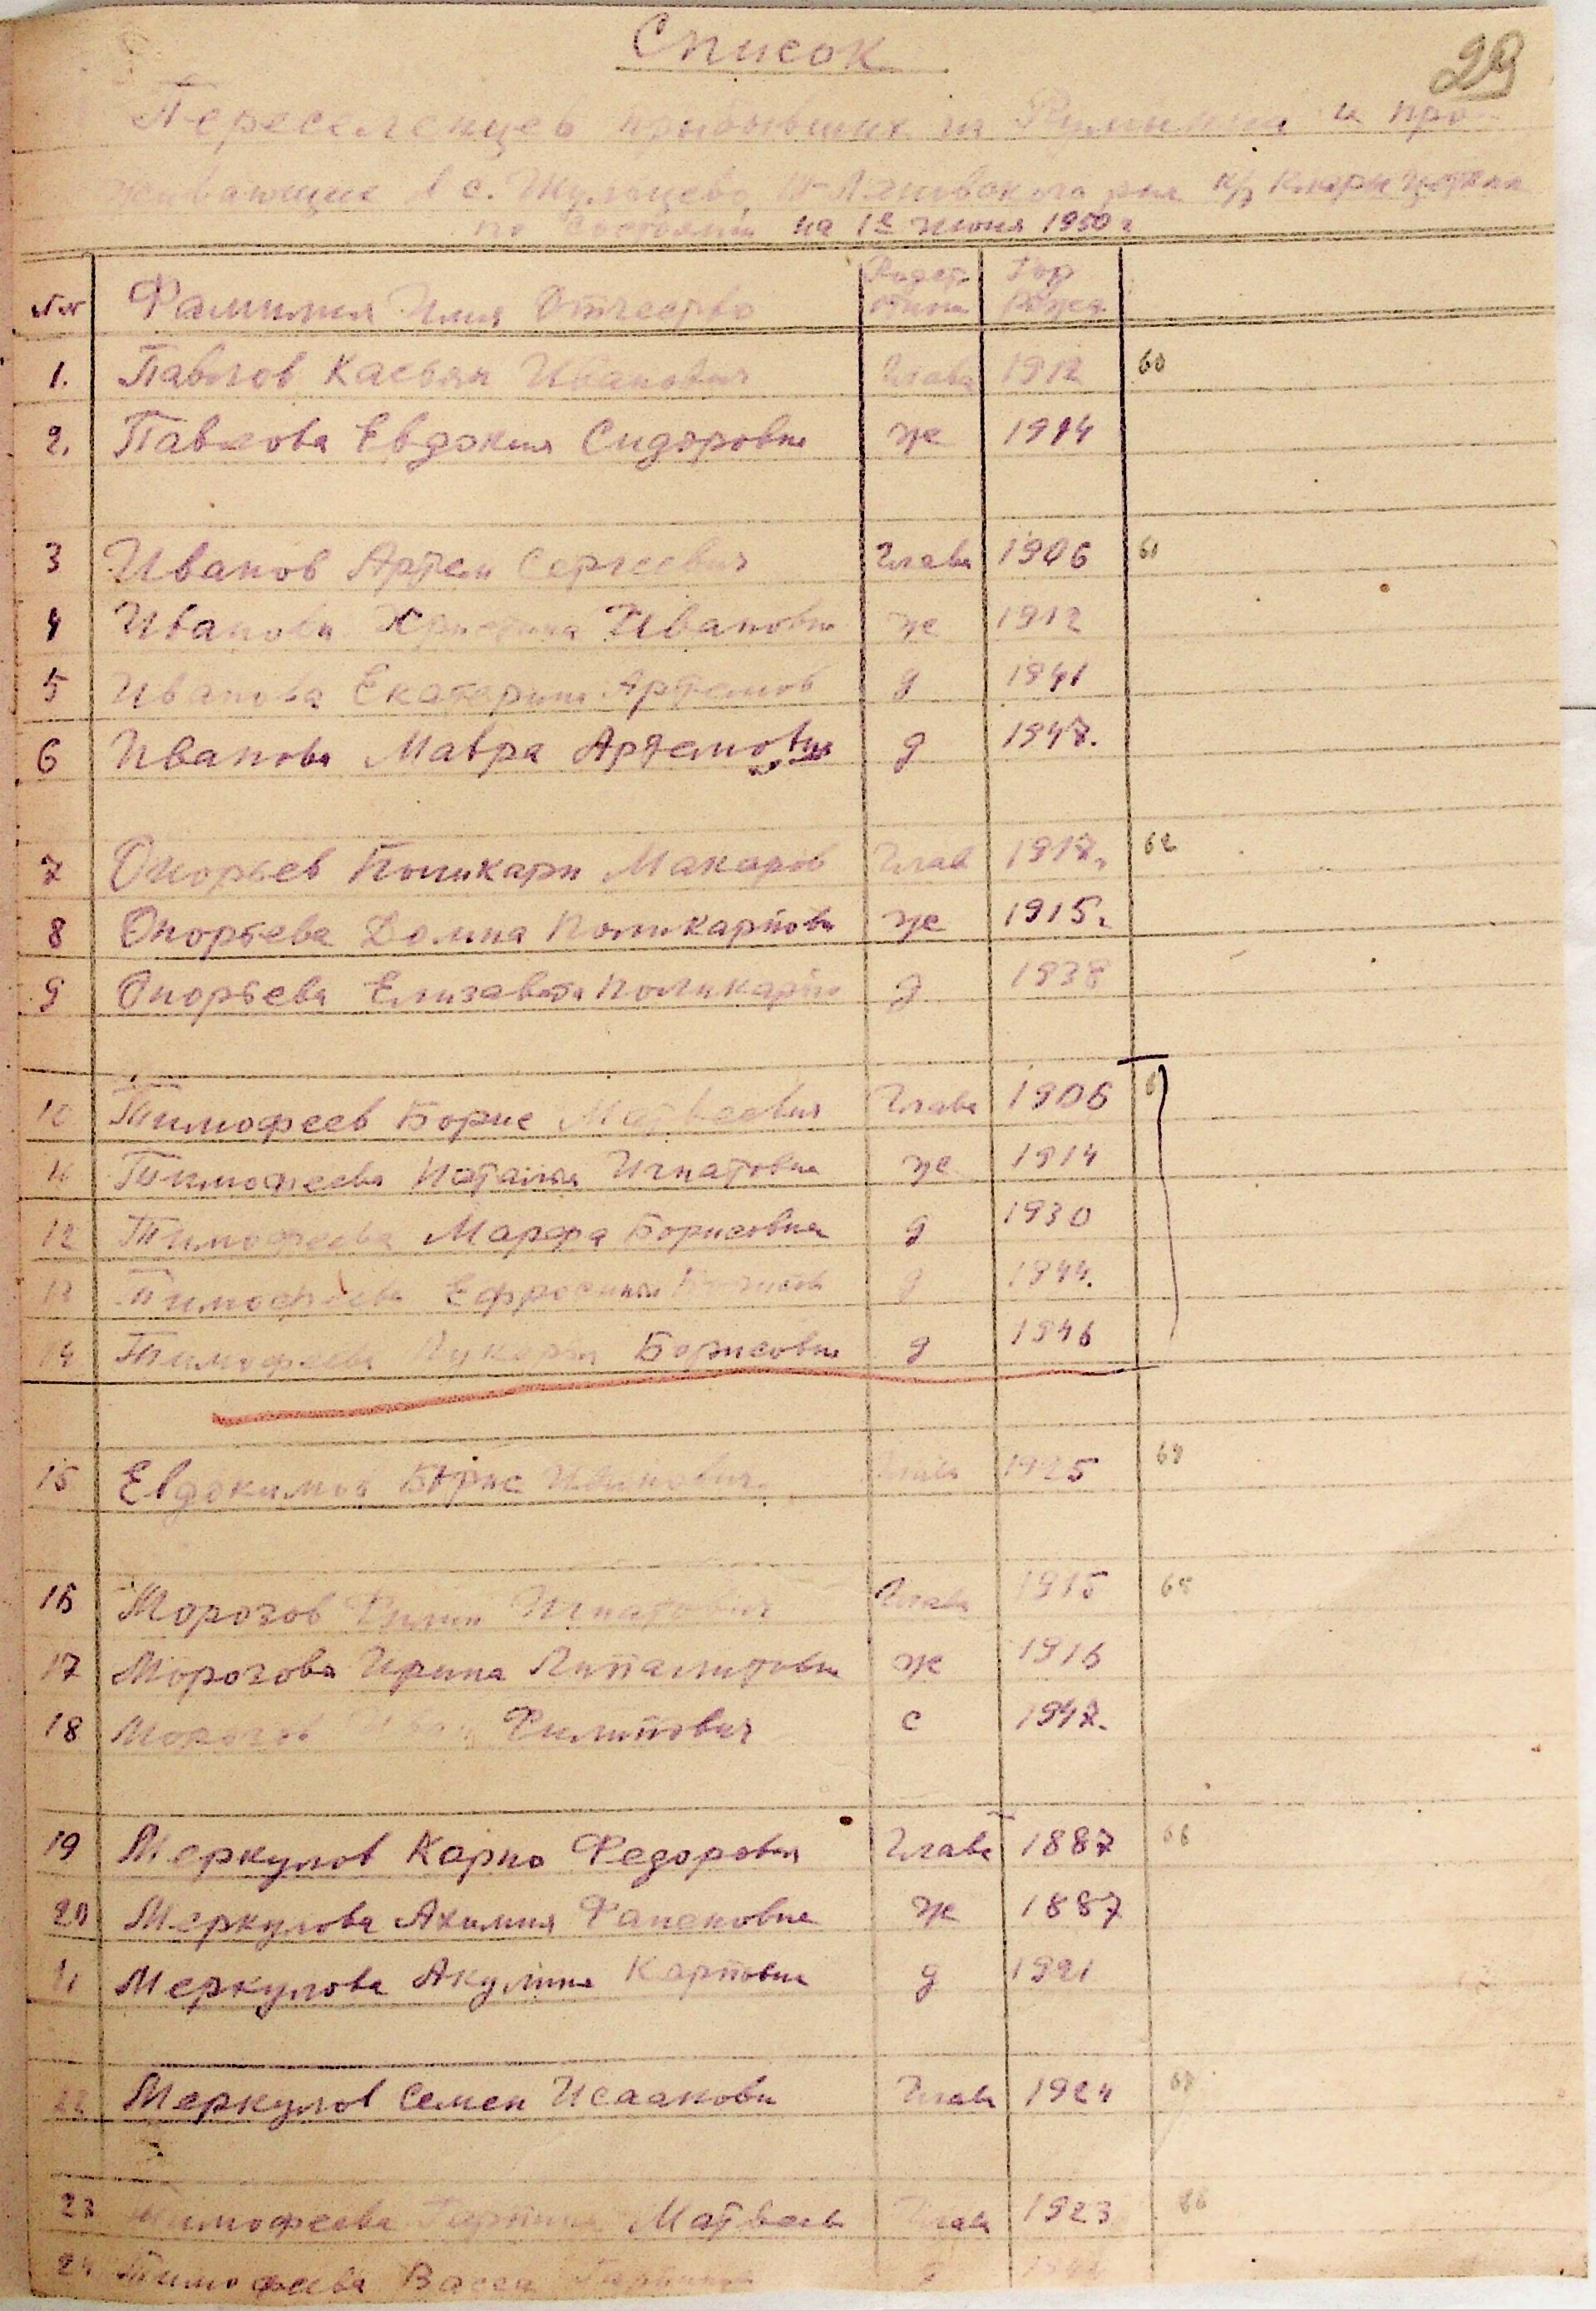 Список
29
Переселенцев прибывших из Румынии и про-
живающие в с. р-на к/з Клары Цеткин
по состоянию на 1е июня 1950 г
№№ Фамилия Имя Отчество Год рожд
1. Павлов Касьян Иванович глава 1912 60
2. Павлова Евдокия Сидоровна ж 1914
3 Иванов Артем Сергеевич глава 1906 61
4 Иванова Христина Ивановна ж 1912
5 Иванова Екатерина Артемов д 1941
6 Иванова Мавра Артемовна д 1947.
7 Поликарп Макаров глав 1917. 62
8 Домна Поликарповн ж 1915.
9 Елизавета Поликарпо д 1938
10 Тимофеев Борис Матвеевич глава 1906
11 Тимофеева Наталья Игнатовна ж 1914
12 Тимофеева Марфа Борисовна д 1930
13 Тимофеева Ефросинья Борисов д 1944.
14 Тимофеева Лукерья Борисовна д 1946
15 Евдокимов Борис Иванович глава 1925 64
16 Морозов Филип Игнатович глава 1915 65
17 Морозова Ирина ж 1916
18 Морозов Иван Филипович с 1947.
19 Меркулов Карпо Федорович глава 1887 66
20 Меркулова Акимия ж 1887
21 Меркулова Акулина Карповна д 1921
22 Меркулов Семен Исаакови глава 1924 67
23 Тимофеева Матвеев глава 1923 68
24 Тимофеева Васса д